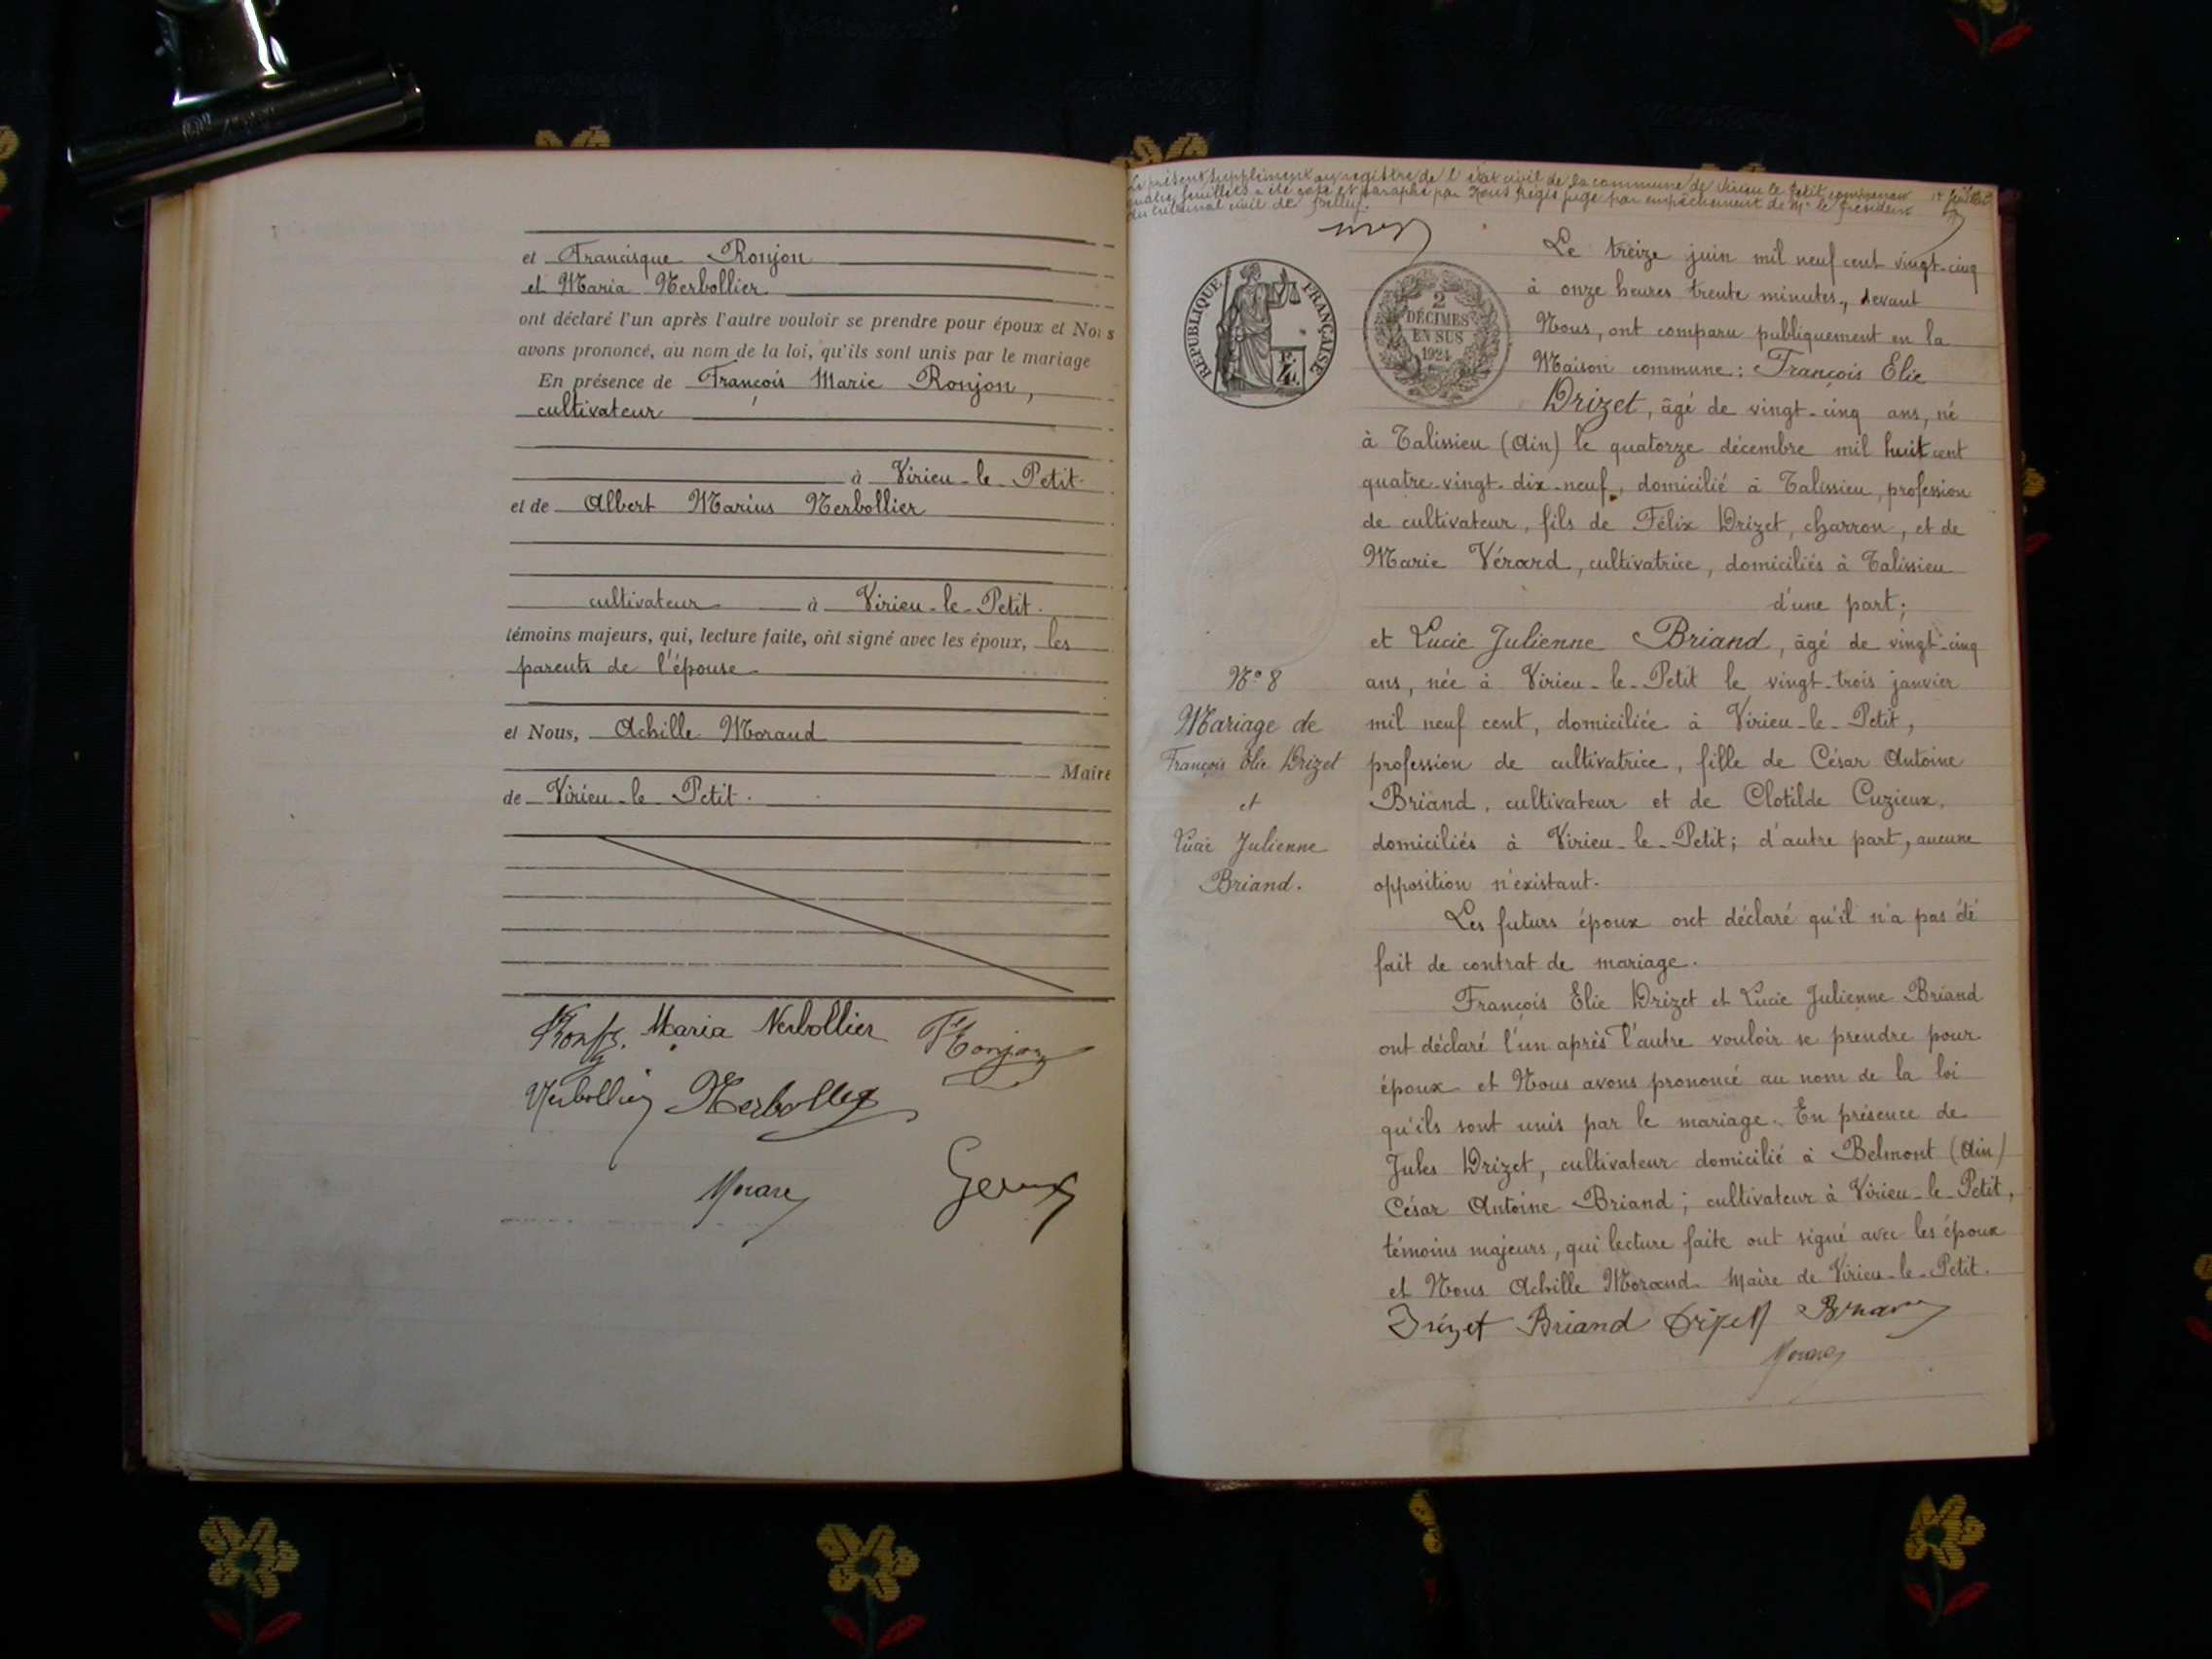 et Francisque Ronjon
et Maria Nerbollier
ont déclaré l'un après l'autre vouloir se prendre pour époux et Nous
avons prononcé, au nom de la loi, qu'ils sont unis par le mariage
En présence de François Marie Ronjon,
cultivateur
à Virieu-le-Petit
et de Albert Marius Nerbollier
cultivateur à Virieu-le-Petit.
témoins majeurs, qui, lecture faite, ont signé avec les époux, les
parents de l'épouse
et Nous, Achille Morand
Maire
de Virieu-le-Petit.
Maria Nerbollier
Nerbollier Nerbollier
Le présent supplément au registre de l'état civil de la commune de Virieu le Petit contenant
quatre feuillets a été coté et paraphé par Nous Régis juge par empêchement de Mr le Président
du tribunal civil de Belley.
RÉPUBLIQUE FRANÇAISE
2
DÉCIMES
EN SUS
1924
Le treize juin mil neuf cent vingt-cinq
à onze heures trente minutes, devant
Nous, ont comparu publiquement en la
Maison commune: François Elie
Drizet, âgé de vingt-cinq ans, né
à Talissieu (Ain) le quatorze décembre mil huit cent
quatre-vingt-dix-neuf, domicilié à Talissieu, profession
de cultivateur, fils de Félix Drizet, charron, et de
Marie Vérard, cultivatrice, domiciliés à Talissieu
d'une part;
et Lucie Julienne Briand, âgé de vingt-cinq
ans, née à Virieu-le-Petit le vingt-trois janvier
mil neuf cent, domiciliée à Virieu-le-Petit,
profession de cultivatrice, fille de César Antoine
Briand, cultivateur et de Clotilde Cuzieux,
domiciliés à Virieu-le-Petit; d'autre part, aucune
opposition n'existant.
Les futurs époux ont déclaré qu'il n'a pas été
fait de contrat de mariage.
François Elie Drizet et Lucie Julienne Briand
ont déclaré l'un après l'autre vouloir se prendre pour
époux et Nous avons prononcé au nom de la loi
qu'ils sont unis par le mariage. En présence de
Jules Drizet, cultivateur domicilié à Belmont (Ain)
César Antoine Briand; cultivateur à Virieu-le-Petit,
témoins majeurs, qui lecture faite ont signé avec les époux
et Nous Achille Morand Maire de Virieu-le-Petit.
Drizet Briand Drizet Briand
Morand
N° 8
Mariage de
François Elie Drizet
et
Lucie Julienne
Briand.